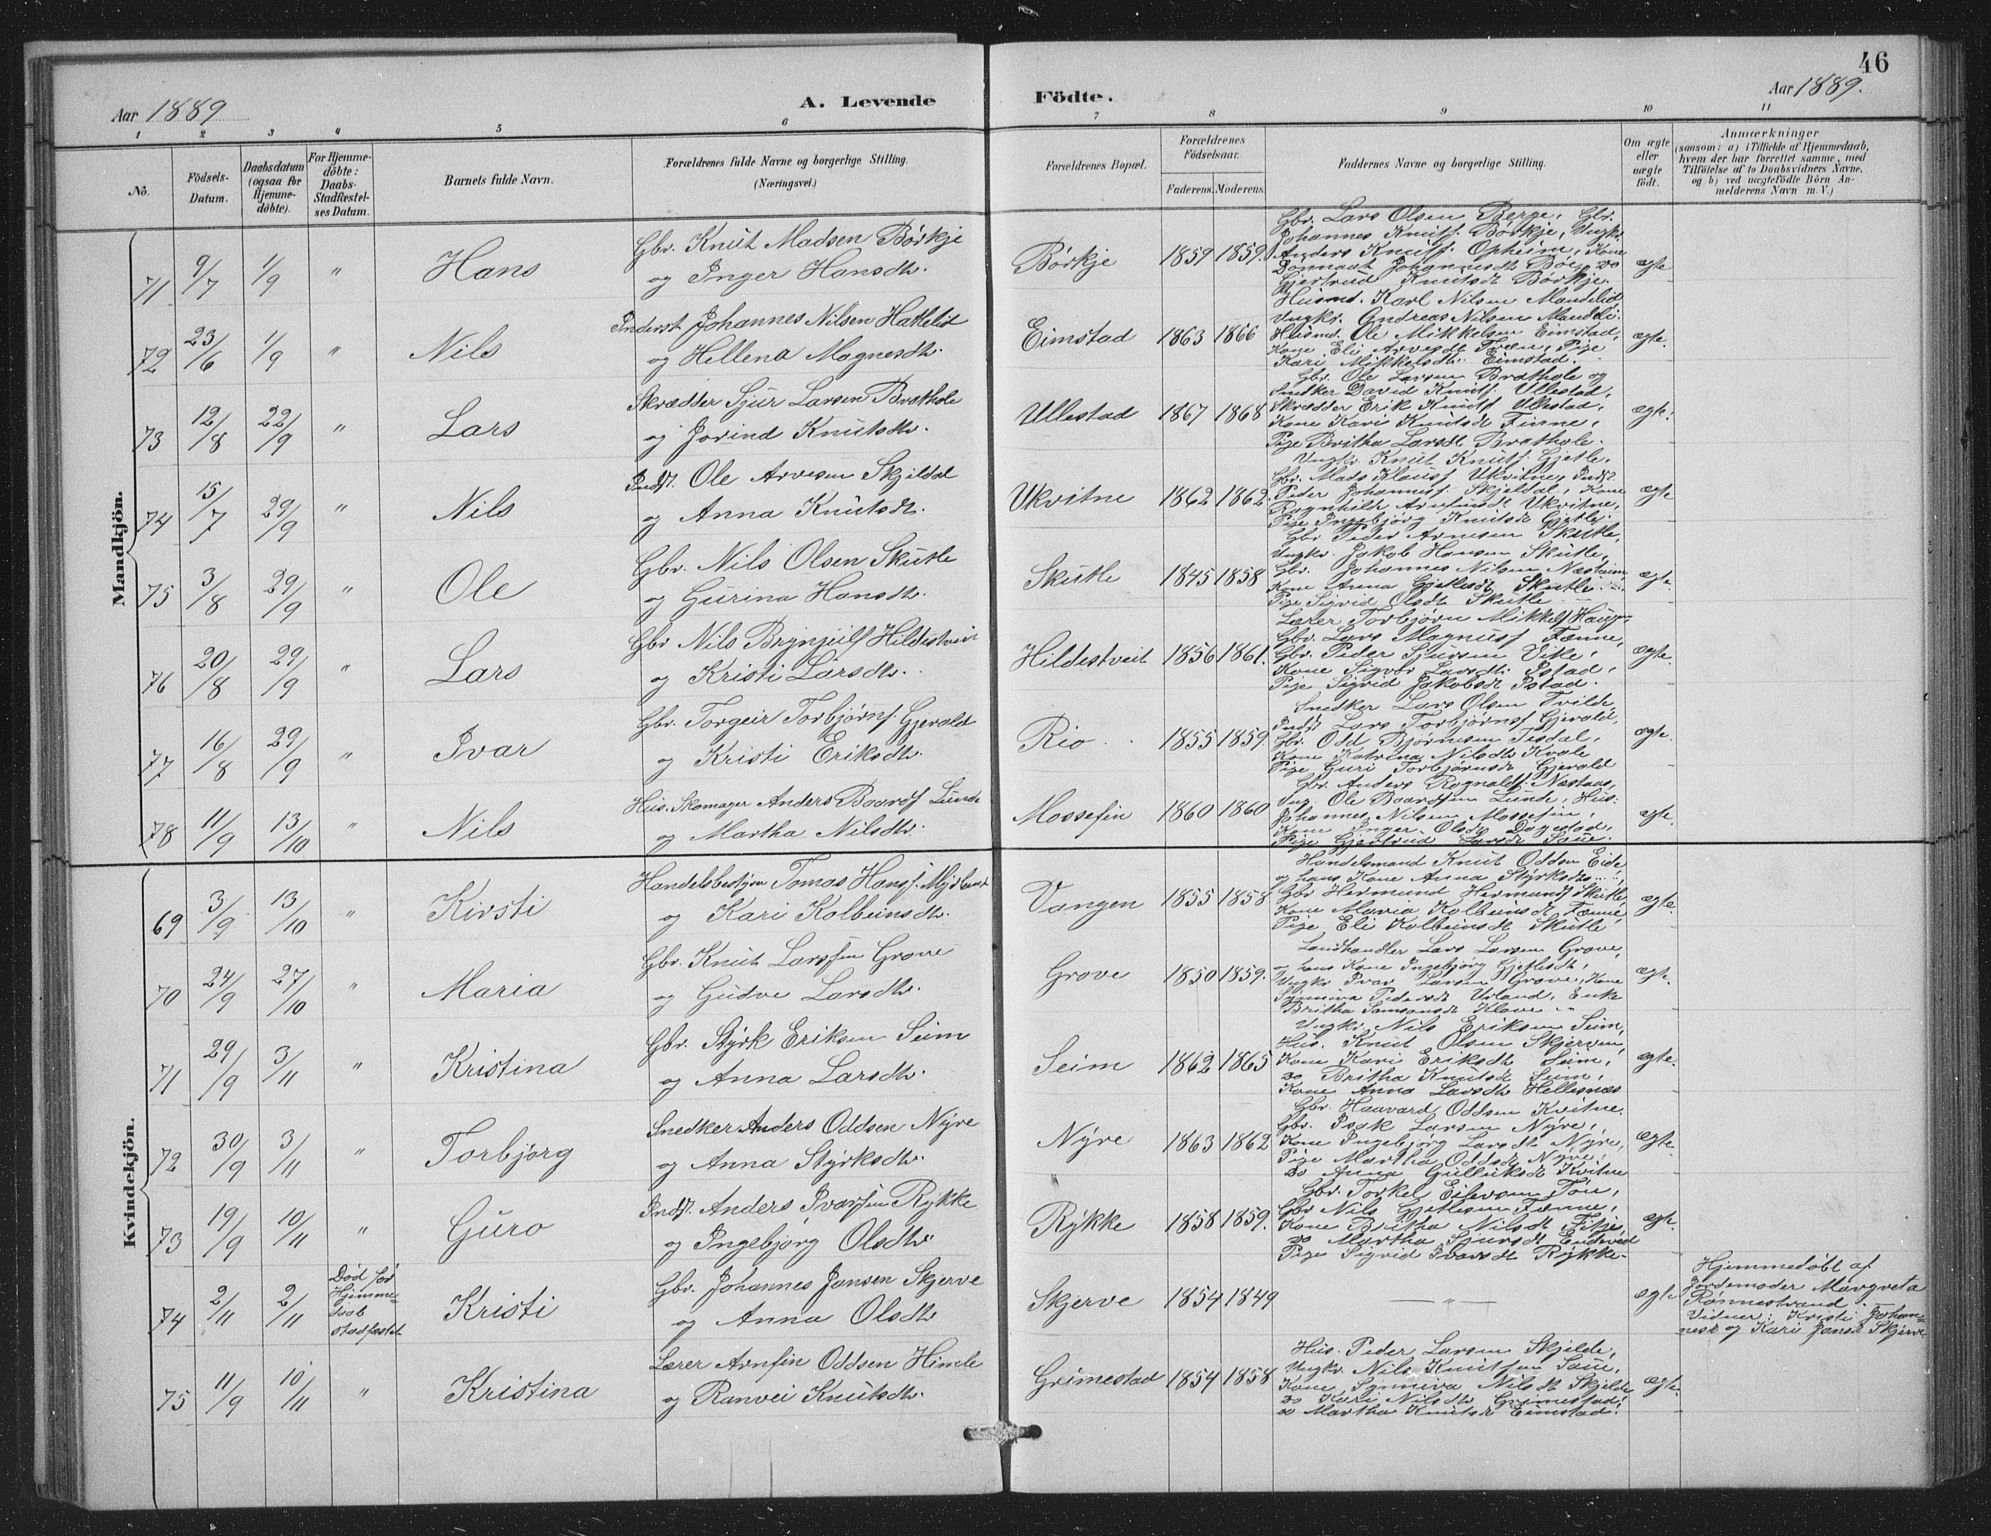 46
Aar 1889
A. Levende Födte.
Aar 1889.
1 2 3 4 5 6 7 8 9 10 11
No.
Födsels-Datum.
Daabsdatum (ogsaa for Hjemme-döbte).
For Hjemme-döbte: Daabs-Stadfæstel-ses Datum.
Barnets fulde Navn.
Forældrenes fulde Navne og borgerlige Stilling. (Næringsvei.)
Forældrenes Bopæl.
Forældrenes Födselsaar.
Faderens. Moderens.
Faddernes Navne og borgerlige Stilling.
Om ægte eller uægte födt.
Anmærkninger
(saasom: a) i Tilfælde af Hjemmedaab, hvem der har forrettet samme, med Tilföielse af to Daabsvidners Navne, og b) ved uægtefödte Börn An-melderens Navn m. V.)
Mandkjön.
71 9/7 1/9 " Hans
Gbr. Knut Madsen Børkje
og Inger Hansdtr.
Børkje 1859 1859.
Gbr. Lars Olsen Berge, Gbr.
Johannes Knuts. Børkje, Ungk.
Anders Knuts. Opheim, Kone
Johannesdt Bøe, do
Gjertrud Knutsdt Børkje.
ægte
72 23/6 1/9 " Nils
Inderst Johannes Nilsen Hatlelid
og Hellena Magnesdtr.
Eimstad 1863 1866
Husmd. Karl Nilsen Mandelid
Ungkr. Andreas Nilsen
Husmd. Ole Mikkelsen Eimstad,
Kone Eli Tvæn, Pige
Kari Mikkelsdt. Eimstad.
ægte.
73 12/8 22/9 " Lars
Skrædder Sjur Larsen Brathole
og Jorind Knutsdtr.
Ullestad 1867 1868
Gbr. Ole Larsen Brathole og
Snedker David Knuts. Ullestad,
Skrædder Erik Knuts. Ullestad,
Kone Kari Knutsdt Finne,
Pige Britha Larsdt Brathole.
ægte.
74 15/7 29/9 " Nils
Indst. Ole Arvesen Skjeldal
og Anna Knutsdtr.
Ukvitne 1862 1862.
Ungkr. Knut Knuts. Gjetle,
Gbr. Mads Klaus. Ukvitne, Indst.
Peder Johannes. Skjeldal, Kone
Ragnhild Arnfinsdt Ukvitne,
Pige Ingebjørg Knutsdt Gjetle.
ægte
75 3/8 29/9 " Ole
Gbr. Nils Olsen Skutle
og Gurina Hansdtr.
Skutle 1845 1858
Gbr. Peder Arnesen Skutle,
Ungkr. Jakob Hansen Skutle,
Gbr. Johannes Nilsen Næsheim,
Kone Anna Gjetlesdt Skutle
Pige Sigvid Olsdt Skutle
ægte
76 20/8 29/9 " Lars
Gbr. Nils Brynjuls. Hildestveit
og Kristi Larsdtr.
Hildestveit 1856 1861.
Lærer Torbjørn Mikkels.
Gbr. Lars Magnus. Fenne,
Gbr. Peder Sjursen Vike,
Kone Sigvor Larsdt. Istad,
Pige Sigrid Jakobsdt Istad.
ægte.
77 16/8 29/9 " Ivar
Gbr. Torgeir Torbjørns. Gjerald
og Kristi Eriksdtr.
Rio 1855 1859.
Snedker Lars Olsen Tvilde,
Indst. Lars Torbjørns. Gjerald,
Gbr. Odd Bjørnesen Tesdal,
Kone Katrina Nilsdtr Kvale
Pige Guri Torbjørnsdt Gjerald
ægte.
78 11/9 13/10 " Nils
Hus. Skomager Anders Baards. Lunde
og Martha Nilsdtr.
Mossefin 1860 1860
Gbr. Anders Rognalds. Næstaas,
Ung. Ole Baardsen Lunde, Hus:
Johannes Nilsen Mossefin,
Kone Inger Olsdt Dagestad,
Pige Gjertrud Larsdt Saue
ægte.
Kvindekjön.
69 3/9 13/10 " Kirsti
Handelsbestyrer Tomas Hans. Mjølsand
og Kari Kolbeinsdtr.
Vangen 1855 1858
Handelsmand Knut Oddsen Eide
og hans Kone Anna Styrksdtr
Gbr Hermund Hermunds. Skutle,
Kone Maria Kolbeinsdt Fenne,
Pige Eli Kolbeinsdt Skutle
ægte.
70 24/9 27/10 " Maria
Gbr. Knut Larssen Grove
og Gudve Larsdtr.
Grove 1850 1859.
Landhandler Lars Larsen Grove,
og hans Kone Ingebjørg Gjetlesdt,
Ungkr Ivar Larsen Grove, Kone
Synneva Pedersdt Urland, Enke
Britha Samsonsdt Kløve
ægte.
71 29/9 3/11 " Kristina
Gbr. Styrk Eriksen Seim
og Anna Larsdtr.
Seim 1862 1865
Ungkr. Nils Eriksen Seim,
Hus. Knut Olsen Skjerven,
Kone Kari Eriksdt Seim,
do Britha Knutsdt Seim,
Kone Anna Larsdt Hellesnæs
ægte.
72 30/9 3/11 " Torbjørg
Snedker Anders Oddsen Nyre
og Anna Styrksdtr.
Nyre 1863 1862
Gbr. Haavard Oddsen Kvitne
Gbr. Isak Larsen Nyre,
Kone Ingebjørg Larsdt Nyre,
Pige Martha Oddsdt Nyre,
do Anna Gulleiksdt Kvitne
ægte.
73 19/9 10/11 " Guro
Indst. Anders Ivarssen Rykke
og Ingebjørg Olsdtr.
Rykke 1858 1859.
Gbr. Torkel Eilevsen Tøn,
Gbr Nils Gjetlesen Fenne,
Kone Britha Nilsdt Fitje
do Martha Sjursdt Endeved
Pige Sigrid Ivarsdt Rykke.
ægte.
74 2/11 2/11 Død før Hjemme-daab stadfæstet
Kristi
Gbr. Johannes Jansen Skjerve
og Anna Olsdtr.
Skjerve 1854 1849
— " —
ægte
Hjemmedøbt af
Jordemoder Margreta
Rønnestrand.
Vidner: Kristi Johan-
nesdt og Kari Jansd Skjerve
75 11/9 10/11 " Kristina
Lærer Arnfin Oddsen Himle
og Ranvei Knutsdtr.
Grimestad 1854 1858
Hus. Peder Larsen Skjelde,
Ungkr. Nils Knutssen Saue,
Kone Synneva Nilsdt Skjelde
do Kari Nilsdt Grimestad,
do Martha Knutsdt Eimstad.
ægte.